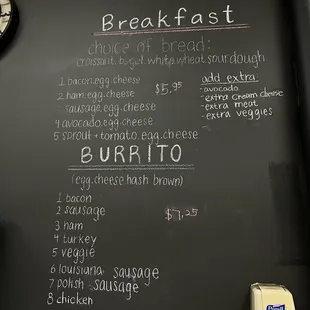 Breakfast
choice of bread:
croissant bagel white wheat sourdough
1 bacon.egg.cheese
2 ham.egg.cheese
sausage.egg.cheese
4 avocado.egg.cheese
5 sprout + tomato.egg.cheese
$5.95
add extra:
- avocado
- extra cream cheese
- extra meat
- extra veggies
BURRITO
(egg.cheese.hash brown)
1 bacon
2 sausage
3 ham
4 turkey
5 veggie
6 louisiana sausage
7 polish sausage
8 chicken
$7.25
PURELL